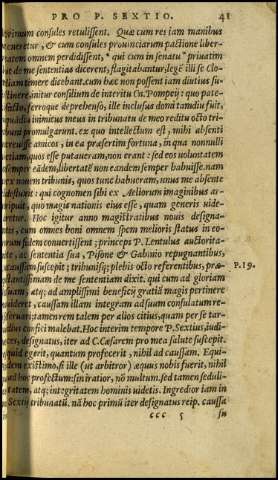 PRO P. SEXTIO. 41
consules retulissent. Quæ cum res iam manibus
teneretur, & cum consules prouinciarum pactione liber-
tatem omnem perdidissent, * qui cum in senatu * priuatim
vt de me sententias dicerent, flagitabantur, legē illi se Clo-
diam timere dicebant. cum hæc non possent iam diutius su-
stinere, initur consilium de interitu Cn. Pompeij: quo pate-
facto, ferroque deprehenso, ille inclusus domi tamdiu fuit,
quādiu inimicus meus in tribunatu de meo reditu octo tri-
buni promulgarunt. ex quo intellectum est, mihi absenti
creuisse amicos, in ea præsertim fortuna, in qua nonnulli
etiam, quos esse putaueram, non erant: sed eos voluntatem
semper eādem, libertatē non eandem semper habuisse. nam
ex nouem tribunis, quos tunc habueram, vnus me absente
defluxit: qui cognomen sibi ex Aeliorum imaginibus ar-
ripuit, quo magis nationis eius esse, quam generis vide-
retur. Hoc igitur anno magistratibus nouis designa-
tis, cum omnes boni omnem spem melioris status in eo-
rum fidem conuertissent: princeps P. Lentulus auctorita-
te, ac sententia sua, Pisone & Gabinio repugnantibus,
caussam suscepit: tribunisq; plebis octo referentibus, præ-
stantissimam de me sententiam dixit. qui cum ad gloriam
suam, atq; ad amplissimi beneficij gratiā magis pertinere
videret, caussam illam integram ad suum consulatum re-
seruari: tamen rem talem per alios citius, quam per se tar-
dius confici malebat. Hoc interim tempore P. Sextius, iudi-
ces, designatus, iter ad C. Cæsarem pro mea salute suscepit.
quid egerit, quantum profecerit, nihil ad caussam. Equi-
dem existimo, si ille (vt arbitror) æquus nobis fuerit, nihil
ad hoc profectum: sin iratior, nō multum. sed tamen seduli-
tatem, atq; integritatem hominis videtis. Ingredior iam in
Sextij tribunatū. nā hoc primū iter designatus reip. caussa
P. 19.
ccc 5 su